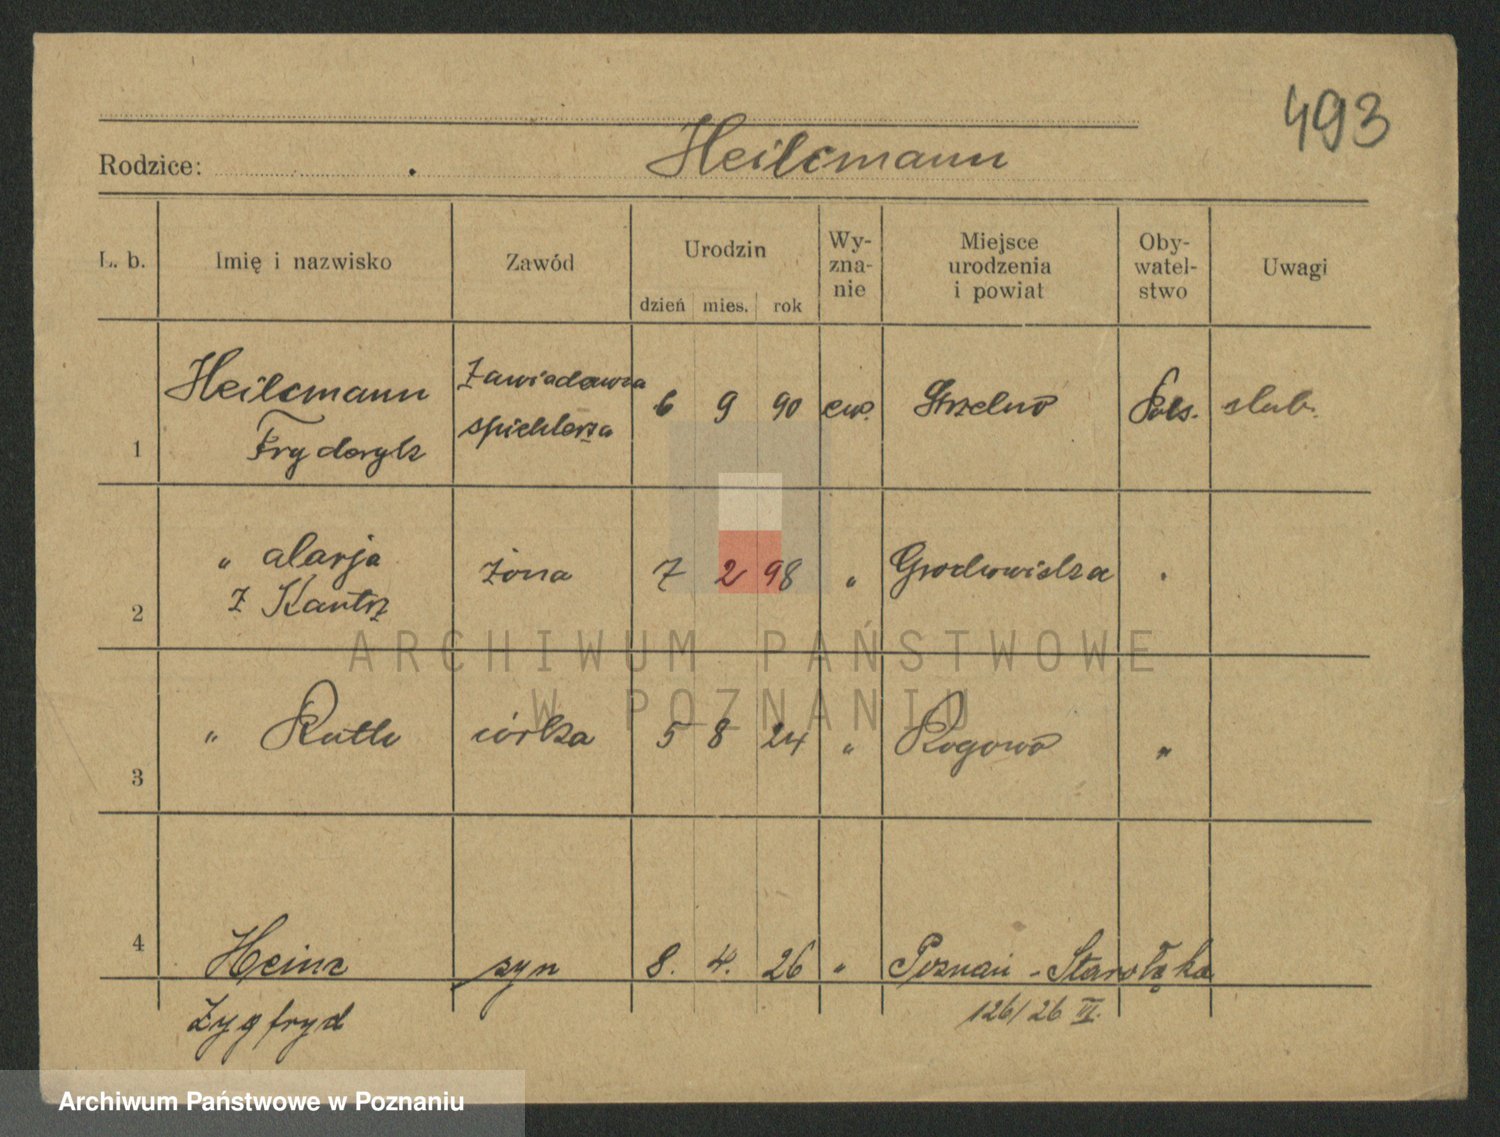 493
Rodzice: Heilemann
L. b. Imię i nazwisko Zawód Urodzin dzień mies. rok Wy-zna-nie Miejsce urodzenia i powiat Oby-watel-stwo Uwagi
Heilemann Zawiadowca 6 9 90 ew. Strzelno Pols. slub.
1 Fryderyk spichlerza
" Marja żona 7 2 98 " Grochowiska "
2 z Kantz
" Ruth córka 5 8 24 " Rogowo "
3
4 Heinz syn 8. 4. 26 " Poznań - Starołęka
Zygfryd 126/26 III.
ARCHIWUM PAŃSTWOWE
W POZNANIU
Archiwum Państwowe w Poznaniu